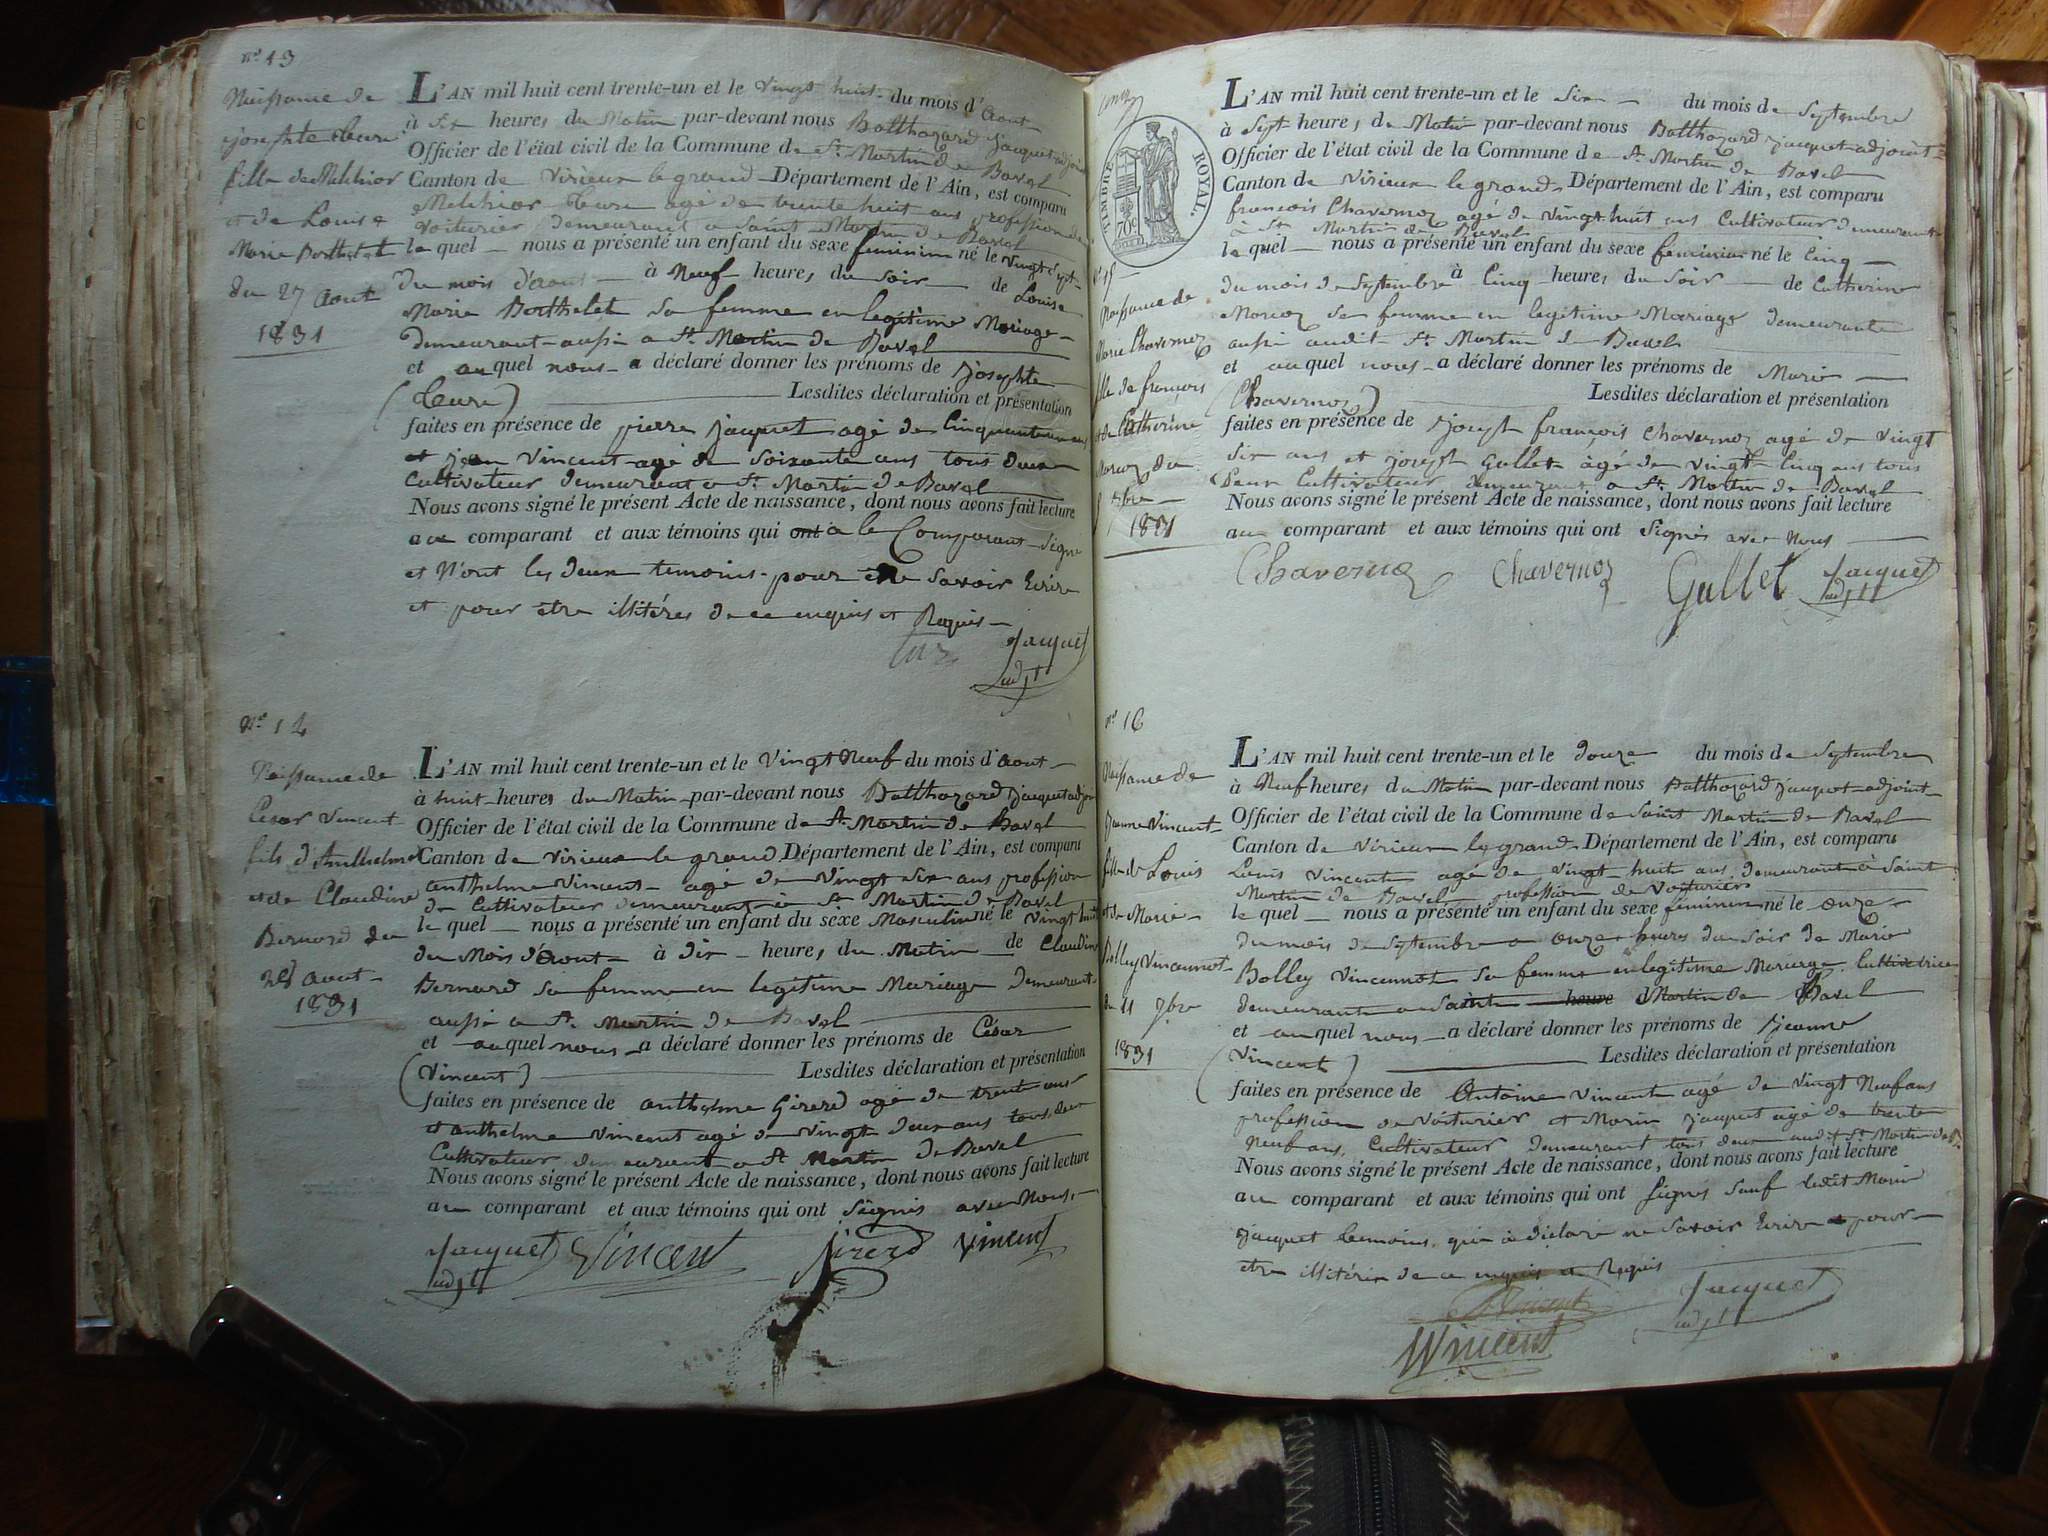 n.º 13
Naissance de
josephte Cleure
fille de Melchior
et de Louise
Marie Berthelet
du 27 Aout
1831
L'AN mil huit cent trente-un et le vingt huit du mois d'Aout
à six heures du Matin par-devant nous Balthazard jacquet adjoint
Officier de l'état civil de la Commune de St. Martin de Bavel
Canton de Virieux le grand Département de l'Ain, est comparu
Melchior Cleure agé de trente huit ans profession de
voiturier demeurant a Saint Martin de Bavel
le quel nous a présenté un enfant du sexe feminin né le vingt sept
du mois d'aout à Neuf heures du soir de Louise
Marie Berthelet sa femme en legitime Mariage
demeurant aussi a St. Martin de Bavel
et auquel nous a déclaré donner les prénoms de josephte
(Cleure) Lesdites déclaration et présentation
faites en présence de pierre jacquet agé de Cinquante un ans
et jean Vincent agé de soixante ans tous deux
Cultivateur demeurant a St. Martin de Bavel
Nous avons signé le présent Acte de naissance, dont nous avons fait lecture
au comparant et aux témoins qui ont a le Comparant Signé
et N'ont les deux temoins pour ne savoir Ecrire
et pour etre illitéres de ce enquis et Requis
jacquet
adjt
n.º 14
Naissance de
César Vincent
fils d'Anthelme
et de Claudine
Bernard du
28 aout
1831
L'AN mil huit cent trente-un et le Vingt Neuf du mois d'aout
à huit heures du Matin par-devant nous Balthazard jacquet adjoint
Officier de l'état civil de la Commune de St. Martin de Bavel
Canton de Virieux le grand Département de l'Ain, est comparu
anthelme Vincent agé de Vingt six ans profession
de Cultivateur demeurant a St Martin de Bavel
le quel nous a présenté un enfant du sexe Masculin né le Vingt huit
du Mois d'Aout à dix heures du Matin de Claudine
Bernard sa femme en legitime Mariage demeurant
aussi a St. Martin de Bavel
et auquel nous a déclaré donner les prénoms de César
(Vincent) Lesdites déclaration et présentation
faites en présence de anthelme Girerd agé de trent ans
et anthelme Vincent agé de vingt deux ans tous deux
Cultivateur demeurant a St Martin de Bavel
Nous avons signé le présent Acte de naissance, dont nous avons fait lecture
au comparant et aux témoins qui ont signés avec Nous
jacquet Vincent Girerd Vincent
adjt
TIMBRE ROYAL.
70c
n.º 15
Naissance de
Marie Chavernoz
fille de françois
et de Catherine
Marcoz du
5 7bre
1831
L'AN mil huit cent trente-un et le six du mois de Septembre
à Sept heures du Matin par-devant nous Balthazard jacquet adjoint
Officier de l'état civil de la Commune de St. Martin de Bavel
Canton de Virieux le grand Département de l'Ain, est comparu
françois Chavernoz agé de vingt huit ans Cultivateur demeurant
a St Martin de Bavel
le quel nous a présenté un enfant du sexe feminin né le cinq
du mois de Septembre à Cinq heures du Soir de Catherine
Marcoz sa femme en legitime Mariage demeurante
aussi audit St Martin de Bavel
et auquel nous a déclaré donner les prénoms de Marie
(Chavernoz) Lesdites déclaration et présentation
faites en présence de joseph françois Chavernoz agé de Vingt
six ans et joseph Gullet àgé de vingt Cinq ans tous
deux Cultivateur demeurant a St. Martin de Bavel
Nous avons signé le présent Acte de naissance, dont nous avons fait lecture
au comparant et aux témoins qui ont signés avec Nous
Chavernoz Chavernoz Gullet jacquet
adjt
n.º 16
Naissance de
jeanne Vincent
fille de Louis
et de Marie
Bolley Vincennot
du 11 7bre
1831
L'AN mil huit cent trente-un et le douze du mois de Septembre
à Neuf heures du Matin par-devant nous Balthazard jacquet adjoint
Officier de l'état civil de la Commune de Saint Martin de Bavel
Canton de Virieux le grand Département de l'Ain, est comparu
Louis Vincent agé de vingt huit ans demeurant à Saint
Martin de Bavel profession de Voiturier
le quel nous a présenté un enfant du sexe féminin né le onze
du mois de Septembre a onze heures du soir de Marie
Bolley Vincennot sa femme en legitime Mariage Cultivatrice
demeurante a Sainte heure Martin de Bavel
et auquel nous a déclaré donner les prénoms de jeanne
(Vincent) Lesdites déclaration et présentation
faites en présence de Antoine Vincent agé de Vingt Neuf ans
profession de Voiturier et Marin jacquet agé de trente
neuf ans Cultivateur demeurant tous deux audit St Martin de B.
Nous avons signé le présent Acte de naissance, dont nous avons fait lecture
au comparant et aux témoins qui ont signés sauf ledit Marin
jacquet temoins qui a déclaré ne savoir Ecrire et pour
etre illitérés de ce enquis et Requis
Vincent jacquet
Vincent adjt